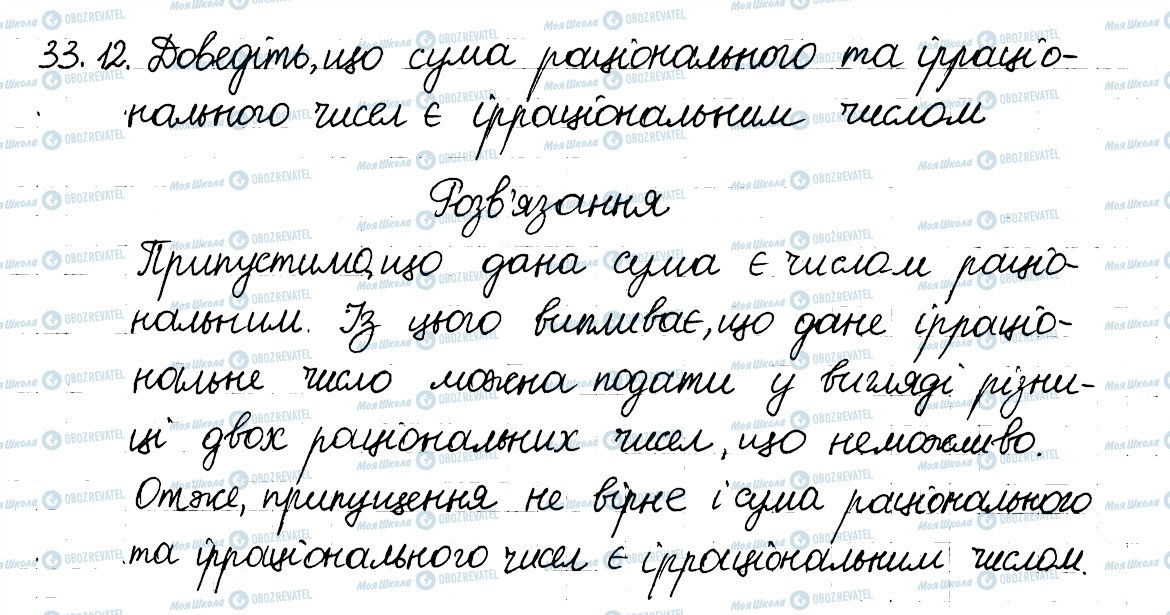 33.12. Доведіть, що сума раціонального та ірраціо-
нального чисел є ірраціональним числом
Розв'язання
Припустимо, що дана сума є числом раціо-
нальним. Із цього випливає, що дане ірраціо-
нальне число можна подати у вигляді різни-
ці двох раціональних чисел, що неможливо.
Отже, припущення не вірне і сума раціонального
та ірраціонального чисел є ірраціональним числом.
МояШкола OBOZREVATEL